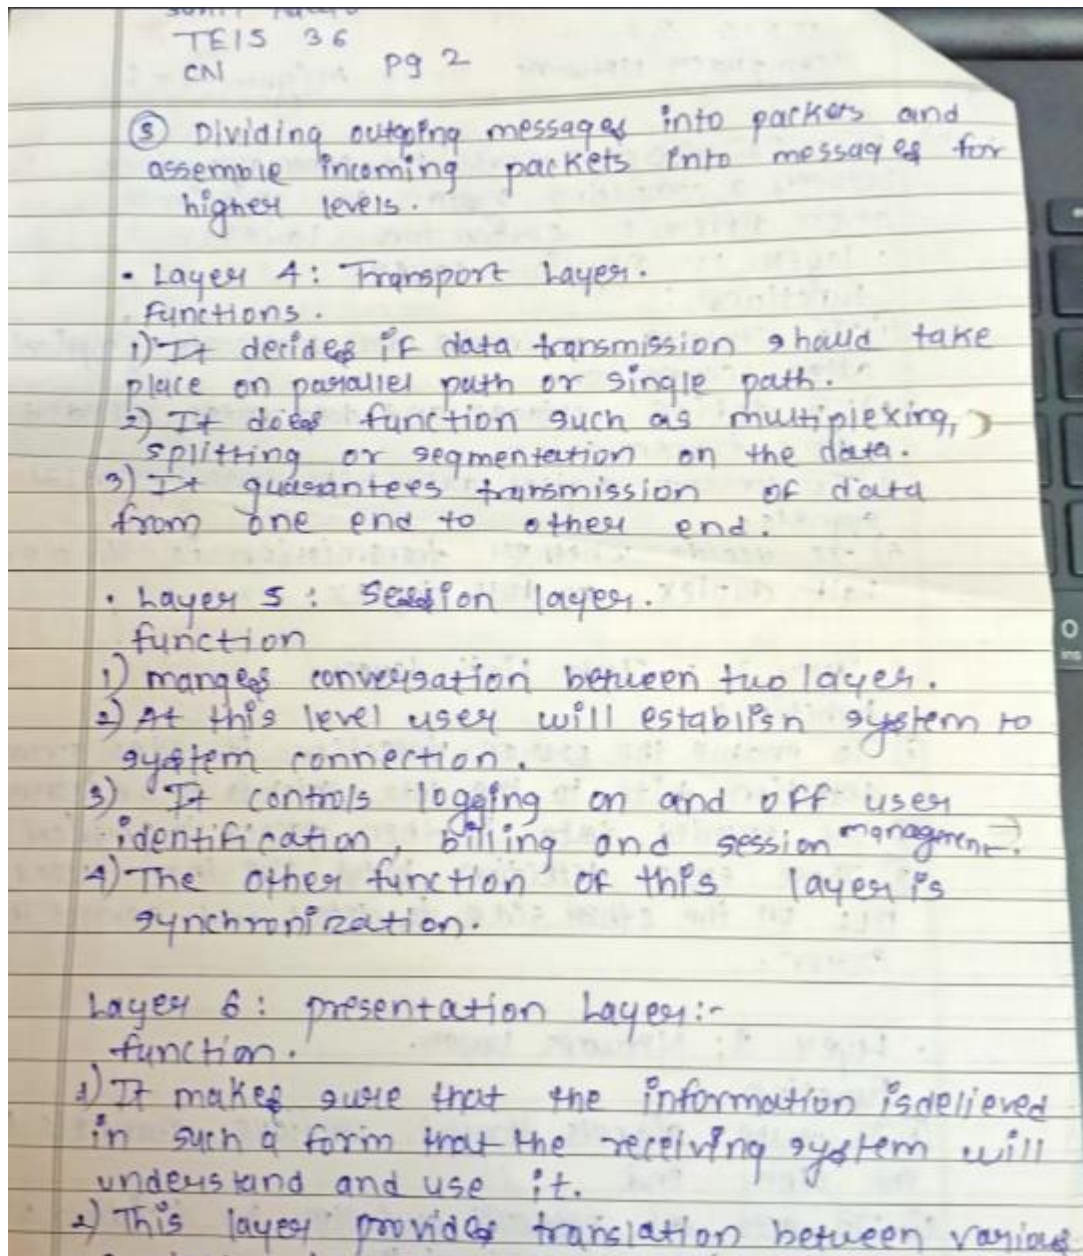 TEIS 36
CN pg 2
⑤ Dividing outgoing messages into packets and
assemble incoming packets into messages for
higher levels.
• Layer 4: Transport Layer.
Functions.
1) It decides if data transmission should take
place on parallel path or single path.
2) It does function such as multiplexing,
splitting or segmentation on the data.
3) It guarantees transmission of data
from one end to other end.
• Layer 5: Session layer.
function
1) manges conversation between two layer.
2) At this level user will establish system to
system connection.
3) It controls logging on and off user
identification, billing and session management.
4) The other function of this layer is
synchronization.
Layer 6: presentation Layer:-
function.
1) It makes sure that the information isdelieved
in such a form that the receiving system will
understand and use it.
2) This layer provides translation between various